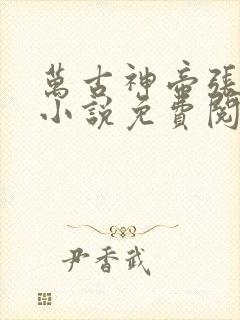 萬古神帝張
小說免費閱
尹香武